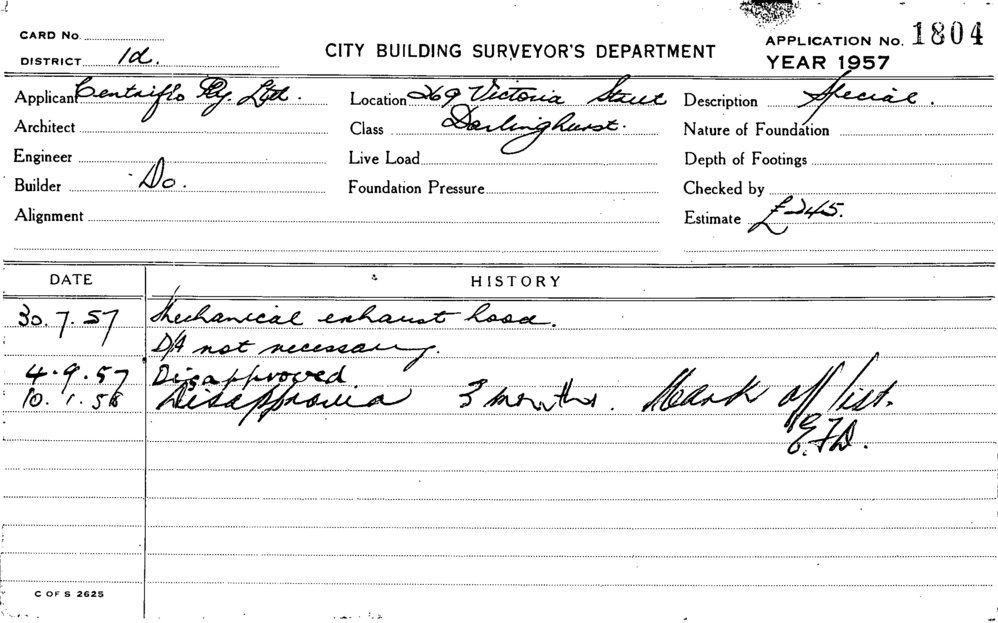 CARD No.
DISTRICT 1d.
CITY BUILDING SURVEYOR'S DEPARTMENT
APPLICATION No. 1804
YEAR 1957
Applicant Centriflo Pty. Ltd.
Location 269 Victoria Street
Description Special.
Architect
Class Darlinghurst.
Nature of Foundation
Engineer
Live Load
Depth of Footings
Builder Do.
Foundation Pressure
Checked by
Alignment
Estimate £245.
DATE HISTORY
30.7.57 Mechanical exhaust hood.
D/A not necessary.
4.9.57 Disapproved.
10.1.58 Disapproved 3 months. Mark off list.
E.F.D.
C OF S 2625